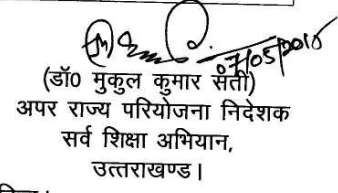 07/05/2015
(डॉ0 मुकुल कुमार सती)
अपर राज्य परियोजना निदेशक
सर्व शिक्षा अभियान,
उत्तराखण्ड।